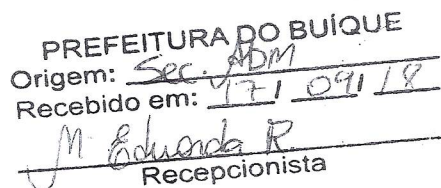 PREFEITURA DO BUÍQUE
Origem: Sec. ADM
Recebido em: 17/ 09/ 18
M Eduarda R
Recepcionista